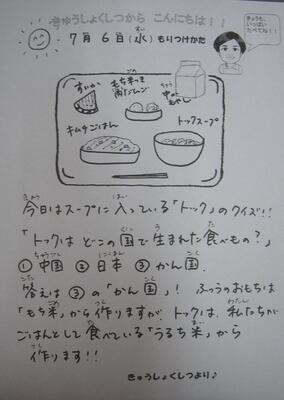 きゅうしょくしつから こんにちは！！
きょうも、
いっぱい
たべてね！！
7月 6日(水) もりつけかた
すいか
もち米つき
肉だんご
キムチごはん
トックスープ
今日はスープに入っている「トック」のクイズ!!
「トックは どこの国で 生まれた食べもの？」
① 中国 ② 日本 ③ かん国.
答えは ③の「かん国」! ふつうのおもちは
「もち米」から作りますが、トックは、私たちが
ごはんとして 食べている「うるち米」から
作ります!!
きゅうしょくしつより♪